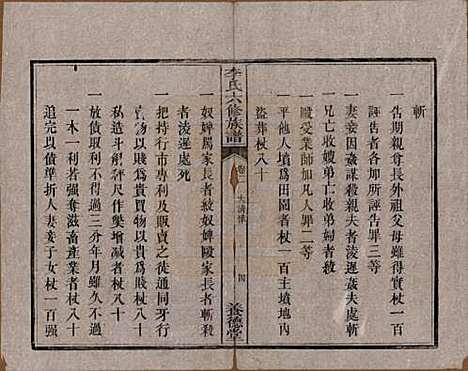 斬
一告期親尊長外祖父母雖得實杖一百
各減所誣告罪三等
一妻妾因姦謀殺親夫者淩遲姦夫處斬
一兄亡收嫂弟亡收弟婦者絞
一毆受業師加凡人罪二等
一平他人墳爲田園者杖一百主墳地內
盜葬杖八十
李氏六修族譜
卷二
大清律
四
養德堂
一奴婢罵家長者絞奴婢毆家長者斬殺
者淩遲處死
一把持行市專利及販賣之徒通同牙行
以賤爲貴買物以貴爲賤杖八十
私造斗斛秤尺作弊增減者杖八十
一放債取利不得過三分年月雖久不過
一本一利若強奪滋畜產業者杖八十
追完以債準折人妻妾子女杖一百強